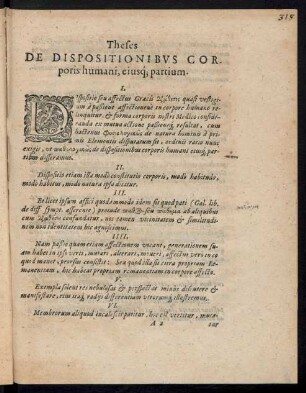 319
Theses
DE DISPOSITIONIBVS COR-
poris humani, eiusq́; partium.
I.
DIspositio seu affectus Græcis quasi vestigi-
um à patiente affectionem in corpore humano re-
linquitur, & forma corporis nostri Medico conside-
randa ex mutua actione passioneq́; resultat, cum
hactenus de natura hominis à pri-
mis Elementis disputatum sit, ordinis ratio nunc
exigit, vt de dispositionibus corporis humani eiusq́; par-
tibus disseramus.
II.
Dispositio etiam illa modò constitutio corporis, modò habitudo,
modò habitus, modò natura ipsa dicitur.
III.
Relicet ipsum affici quodammodo idem sit quod pati (Gal. lib.
de diff. symp. asserente) proinde à aliquibus
cum confundatur, nos tamen vicinitatem & similitudi-
nem non identitatem hic agnoscimus.
IIII.
Nam passio quam etiam affectionem vocant, generationem su-
am habet in ipso verti, mutari, alterari, moueri, affectus verò in eo
quod mouet, prorsus consistit: Seu quod illa sit citra propriam re-
manentiam, hic habeat propriam remanentiam in corpore affecto.
V.
Exempla solent res nebulosas & perspectas minus dilucere &
manifestare, eius itaq́; rudis differentiam vtrorumq́; illustremus.
VI.
Membrorum aliquod incalescit patitur, hoc est vertitur, muta-
A 2
tur